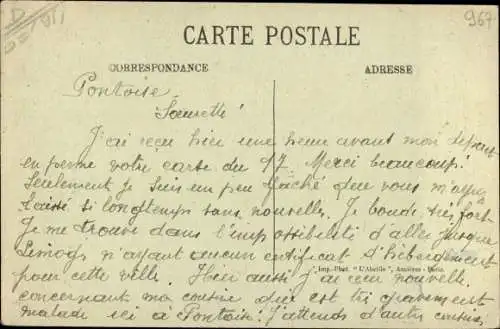 967
D
CARTE POSTALE
CORRESPONDANCE
ADRESSE
Pontoise
Soeurette
J'ai reçu hier une heure avant mon départ
en perme votre carte du 17 Merci beaucoup!
Seulement je suis un peu fâché que vous m'ayez
laissé si longtemps sans nouvelles. Je boude très fort
Je me trouve dans l'impossibilité d'aller jusque
Limoges n'ayant aucun certificat d'hébergement
pour cette ville. Hier aussi j'ai reçu nouvelle
Imp.-Phot. "L'Abeille", Asnières-Paris.
concernant ma cousine qui est très gravement
malade ici à Pontoise. J'attends d'autres